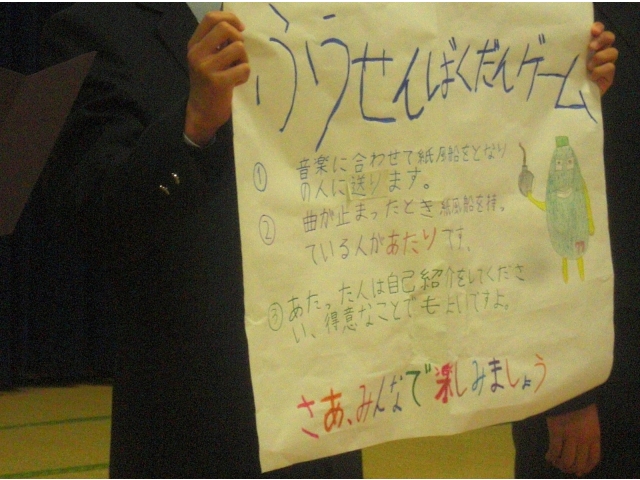 ふうせんばくだんゲーム
① 音楽に合わせて紙風船をとなり
の人に送ります。
② 曲が止まったとき紙風船を持っ
ている人があたりです。
③ あたった人は自己紹介をしてくださ
い、得意なことでもよいですよ。
さあ、みんなで楽しみましょう